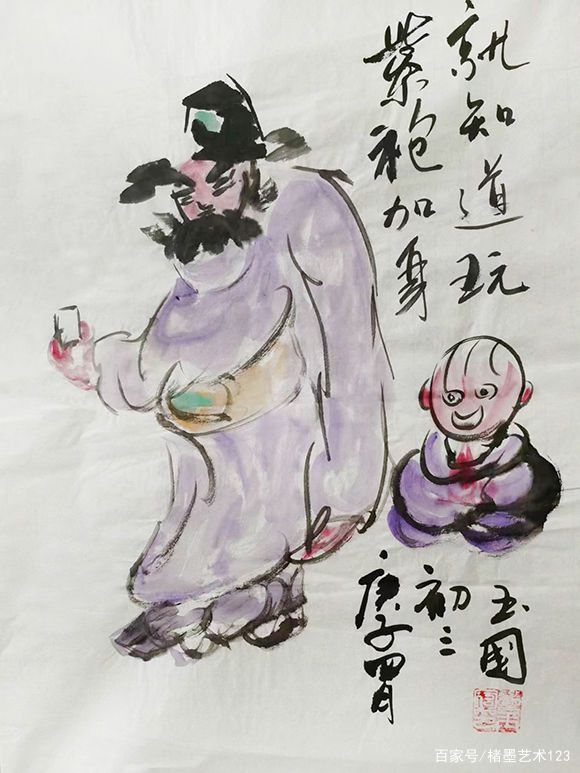 就知道玩
紫袍加身
庚子四月
初三
玉國
百家号/楮墨艺术123